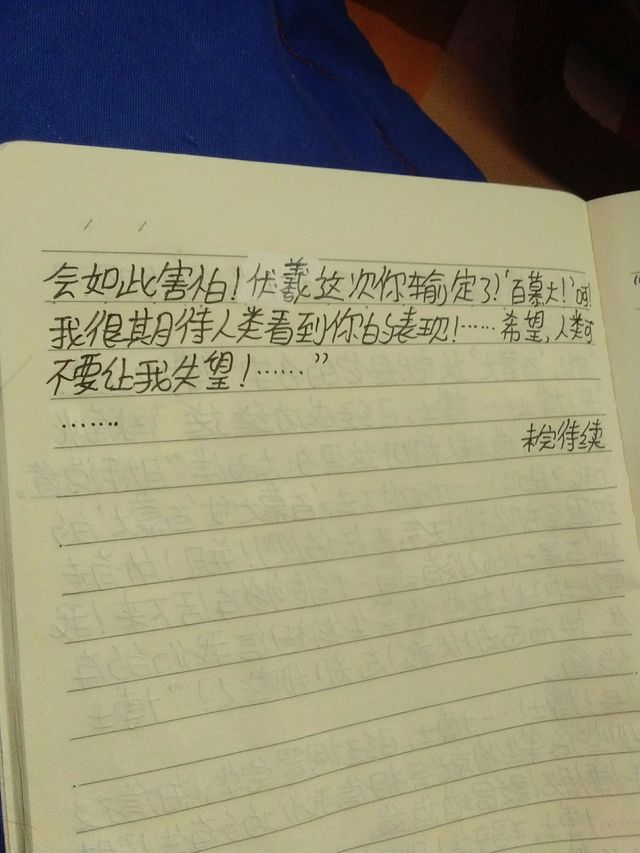 会如此害怕！伏羲这次你输定了！‘百慕大！’呵！
我很期待人类看到你的表现！……希望，人类可
不要让我失望！……”
…….
未完待续